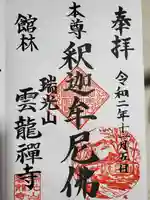 奉拝
令和二年十一月五日
本尊
釈迦牟尼佛
瑞光山
館林
雲龍禪寺